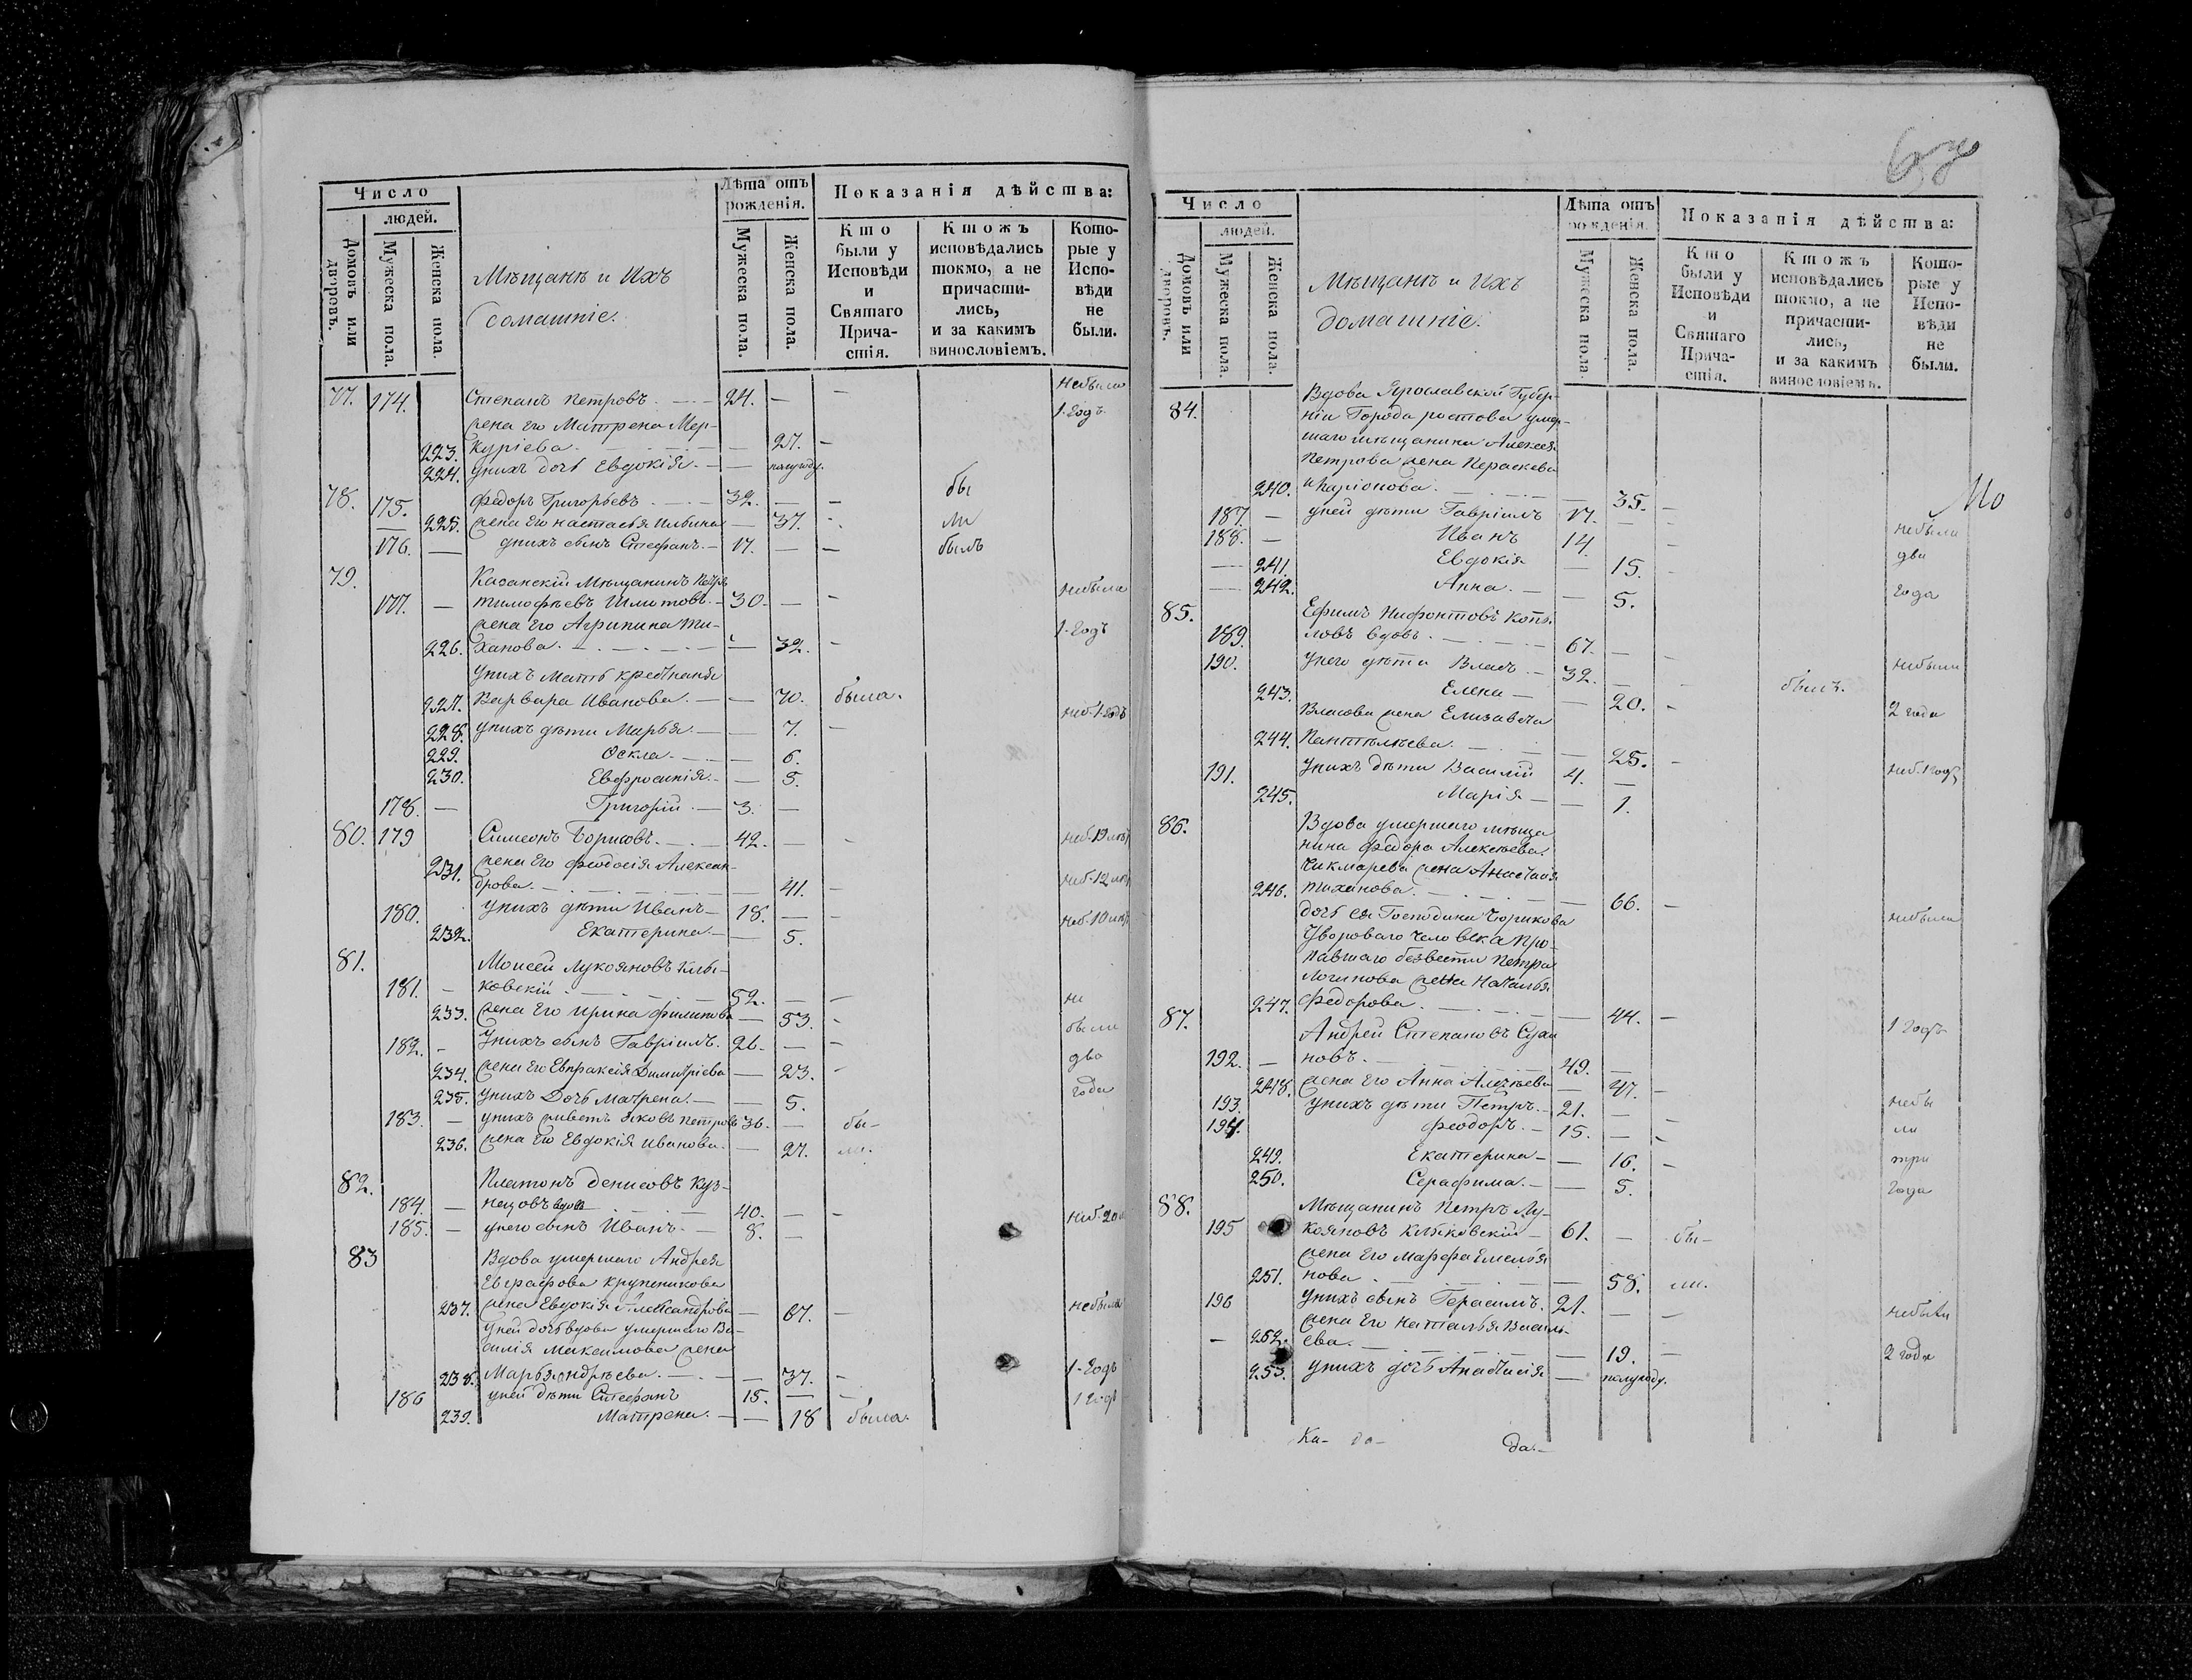 Число
людей.
Домовъ или дворовъ.
Мужеска пола.
Женска пола.
Мѣщанѣ и Ихъ
домашніе.
Лѣта отъ рожденія.
Мужеска пола.
Женска пола.
Показанія дѣйства:
Кто были у Исповѣди и Святаго Причастія.
Ктожъ исповѣдались токмо, а не причастились, и за какимъ винословіемъ.
Которые у Исповѣди не были.
77. 174. Степанъ Петровъ. 24. — — небыли
жена его Матрена Мер- 1. годъ
223. куріева. — 27. —
224. унихъ дочь Евдокія. — полугоду.
78. 175. Федоръ Григорьевъ 32. — — бы
225. жена его настасья Ильина — 37. ли
176. — унихъ сынъ Стефанъ. 17. — — былъ
79. Касанскій Мѣщанинъ Петръ
177. — тимофѣевъ 30. — — небыла
жена его Агрипина Ти- 1. годъ
226. ханова. — 32. —
унихъ мать
227. Варвара Иванова. — 70. была.
228. унихъ дѣти Марья. — 7. — неб. 1 годъ
229. Өекла. — 6.
230. Евфросинія. — 5.
178. — Григорій. 3. —
80. 179 Симеонъ Борисовъ. 42. — — неб. 19 лѣт
231. жена его феодосія Алексан-
дрова. — 41. — неб. 12 лѣт
180. унихъ дѣти Иванъ 18. — — неб. 10 лѣт
232. Екатерина — 5.
81. Моисей Лукояновъ Клы-
181. — ковскій 52. — — не
233. жена его ирина филипова — 53. — были
182. — Унихъ сынъ Гавріилъ. 26. — — два
234. жена его Евпраксія Димитріева — 23. — года
235. унихъ дочь Матрена. — 5.
183. — унихъ живетъ Яковъ петровъ 36. — бы-
236. жена его Евдокія иванова. — 27. ли.
82. Платонъ денисовъ Куз-
184. — нецовъ вдовъ 40. — —
185. — унего сынъ Иванъ. 8. — неб. 2 го
83 Вдова умершаго Андрея
Евграфова крупеникова
237. жена Евдокія Александрова — 67. — небыла
уней дочь вдова умершаго Ва-
силія Максимова жена
238. Марья андрѣева. — 37. — 1. годъ
186 уней дѣти Стефанъ 15. — — 1 годъ
239. Матрена. — 18 была.
Число
людей.
Домовъ или дворовъ.
Мужеска пола.
Женска пола.
Мѣщанѣ и Ихъ
домашніе.
Лѣта отъ рожденія.
Мужеска пола.
Женска пола.
Показанія дѣйства:
Кто были у Исповѣди и Святаго Причастія.
Ктожъ исповѣдались токмо, а не причастились, и за какимъ винословіемъ.
Которые у Исповѣди не были.
84. Вдова Ярославской Губер-
ніи Города ростова умер-
шаго мѣщанина Алексея
Петрова жена Пераскева
240. иларіонова. — 35. —
187. — уней дѣти Гавріилъ 17. — небыли
188. — Иванъ 14. — два
— 241. Евдокія — 15. —
— 242. Анна. — 5. года
85. Ефимъ Нифонтовъ
189. ловъ вдовъ. 67. — —
190. унего дѣти Власъ 32. — — небыли
243. Елена — 20. — былъ.
Власова жена Елизавета 2 года
244. Пантѣлѣева. — 25. —
191. унихъ дѣти Василій 4. — неб. 1 годъ
245. Марія — 1.
86. Вдова умершаго мѣща
нина федора Алексѣева
Чикмарева жена Анастасія
246. тиханова. — 66. — небыли
дочь ея Господина
двороваго человека про-
павшаго безвести Петра
логинова жена Наталья
247. федорова. — 44. — 1 годъ
87. Андрей Степановъ
192. — новъ. 49. —
248. жена его Анна Алексѣева — 47. — небы
193. унихъ дѣти Петръ. 21. — —
194. феодоръ. 15. — — ли
249. Екатерина — 16. — три
250. Серафима. — 5. года
88. Мѣщанинъ Петръ Лу-
195 кояновъ Клыковскій 61. — бы-
жена его Марфа Емелья
251. нова. — 58. ли.
196 унихъ сынъ Герасимъ. 21. — — небыли
жена его Наталья Василь-
— 252. ева. — 19. — 2 года
253. унихъ дочь Анастасія — полугоду.
Ка- да-